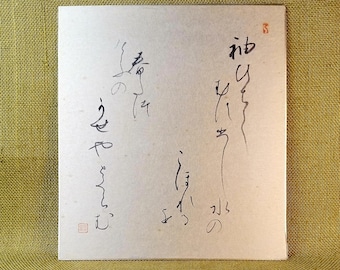 袖ひちて
むすひし水の
こほれる
を
春
けふの
かせやとくらむ